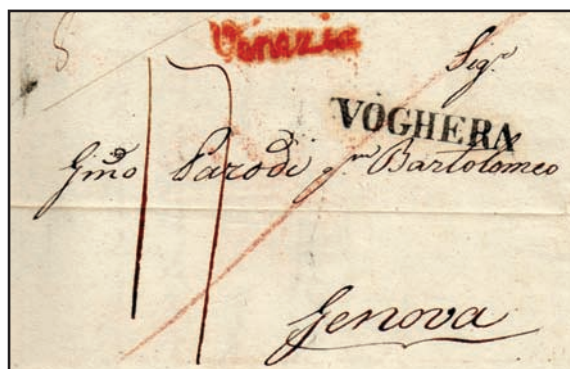 Venezia
Sig.r
VOGHERA
17
Parodi q.m Bartolomeo
Genova